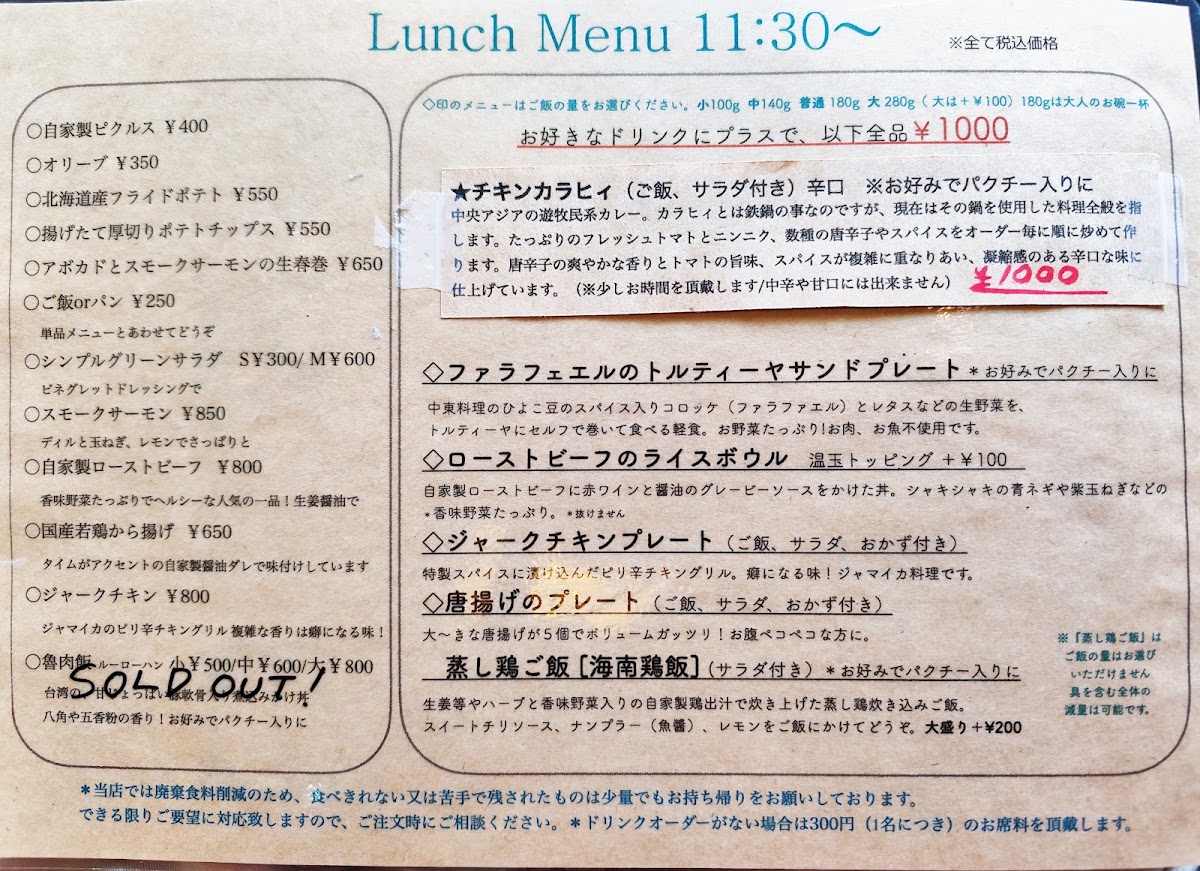 Lunch Menu 11:30～
※全て税込価格
○自家製ピクルス ￥400
○オリーブ ￥350
○北海道産フライドポテト ￥550
○揚げたて厚切りポテトチップス ￥550
○アボカドとスモークサーモンの生春巻 ￥650
○ご飯orパン ￥250
単品メニューとあわせてどうぞ
○シンプルグリーンサラダ S￥300/ M￥600
ビネグレットドレッシングで
○スモークサーモン ￥850
ディルと玉ねぎ、レモンでさっぱりと
○自家製ローストビーフ ￥800
香味野菜たっぷりでヘルシーな人気の一品！生姜醤油で
○国産若鶏から揚げ ￥650
タイムがアクセントの自家製醤油ダレで味付けしています
○ジャークチキン ￥800
ジャマイカのピリ辛チキングリル 複雑な香りは癖になる味！
○魯肉飯 ルーローハン 小￥500/中￥600/大￥800
SOLD OUT!
台湾の、甘じょっぱい豚軟骨入り煮込みかけ丼
八角や五香粉の香り！お好みでパクチー入りに
◇印のメニューはご飯の量をお選びください。小100g 中140g 普通 180g 大 280g（ 大は＋￥100）180gは大人のお碗一杯
お好きなドリンクにプラスで、以下全品￥1000
★チキンカラヒィ（ご飯、サラダ付き）辛口 ※お好みでパクチー入りに
中央アジアの遊牧民系カレー。カラヒィとは鉄鍋の事なのですが、現在はその鍋を使用した料理全般を指
します。たっぷりのフレッシュトマトとニンニク、数種の唐辛子やスパイスをオーダー毎に順に炒めて作
ります。唐辛子の爽やかな香りとトマトの旨味、スパイスが複雑に重なりあい、凝縮感のある辛口な味に
仕上げています。（※少しお時間を頂戴します/中辛や甘口には出来ません） ￥1000
◇ファラフェエルのトルティーヤサンドプレート＊お好みでパクチー入りに
中東料理のひよこ豆のスパイス入りコロッケ（ファラファエル）とレタスなどの生野菜を、
トルティーヤにセルフで巻いて食べる軽食。お野菜たっぷり!お肉、お魚不使用です。
◇ローストビーフのライスボウル 温玉トッピング ＋￥100
自家製ローストビーフに赤ワインと醤油のグレービーソースをかけた丼。シャキシャキの青ネギや紫玉ねぎなどの
＊香味野菜たっぷり。＊抜けません
◇ジャークチキンプレート（ご飯、サラダ、おかず付き）
特製スパイスに漬け込んだピリ辛チキングリル。癖になる味！ジャマイカ料理です。
◇唐揚げのプレート（ご飯、サラダ、おかず付き）
大～きな唐揚げが５個でボリュームガッツリ！お腹ペコペコな方に。
蒸し鶏ご飯［海南鶏飯］（サラダ付き）＊お好みでパクチー入りに
生姜等やハーブと香味野菜入りの自家製鶏出汁で炊き上げた蒸し鶏炊き込みご飯。
スイートチリソース、ナンプラー（魚醤）、レモンをご飯にかけてどうぞ。大盛り＋￥200
※「蒸し鶏ご飯」は
ご飯の量はお選び
いただけません
具を含む全体の
減量は可能です。
＊当店では廃棄食料削減のため、食べきれない又は苦手で残されたものは少量でもお持ち帰りをお願いしております。
できる限りご要望に対応致しますので、ご注文時にご相談ください。＊ドリンクオーダーがない場合は300円（1名につき）のお席料を頂戴します。